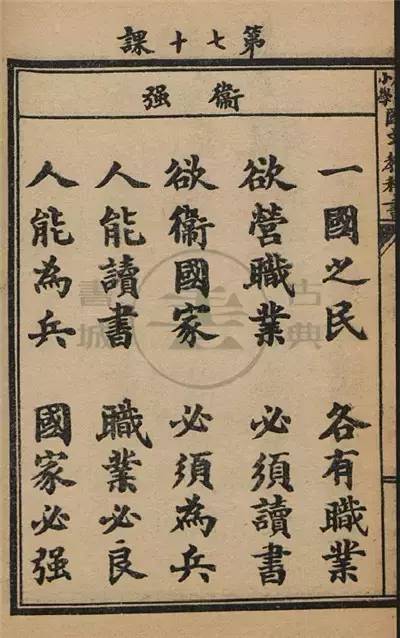 第七十課
衛强
一國之民 各有職業
欲營職業 必須讀書
欲衛國家 必須為兵
人能讀書 職業必良
人能為兵 國家必强
小學國文教科書
古典書城